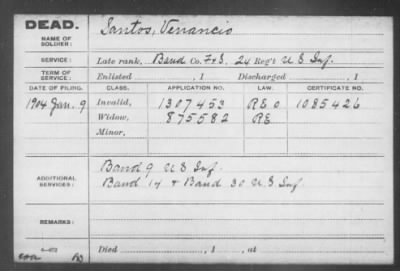 DEAD.
NAME OF SOLDIER: Santos, Venancio
SERVICE: Late rank, Band Co. F&S, 24 Reg't U S Inf.
TERM OF SERVICE: Enlisted , 1 Discharged , 1
DATE OF FILING. CLASS. APPLICATION NO. LAW. CERTIFICATE NO.
1904 Jan. 9 Invalid, 1307453 R E O 1085426
Widow, 875582 RE
Minor,
ADDITIONAL SERVICES: Band 9 U S Inf.
Band 14 & Band 30 U. S Inf.
REMARKS:
Died , 1 , at